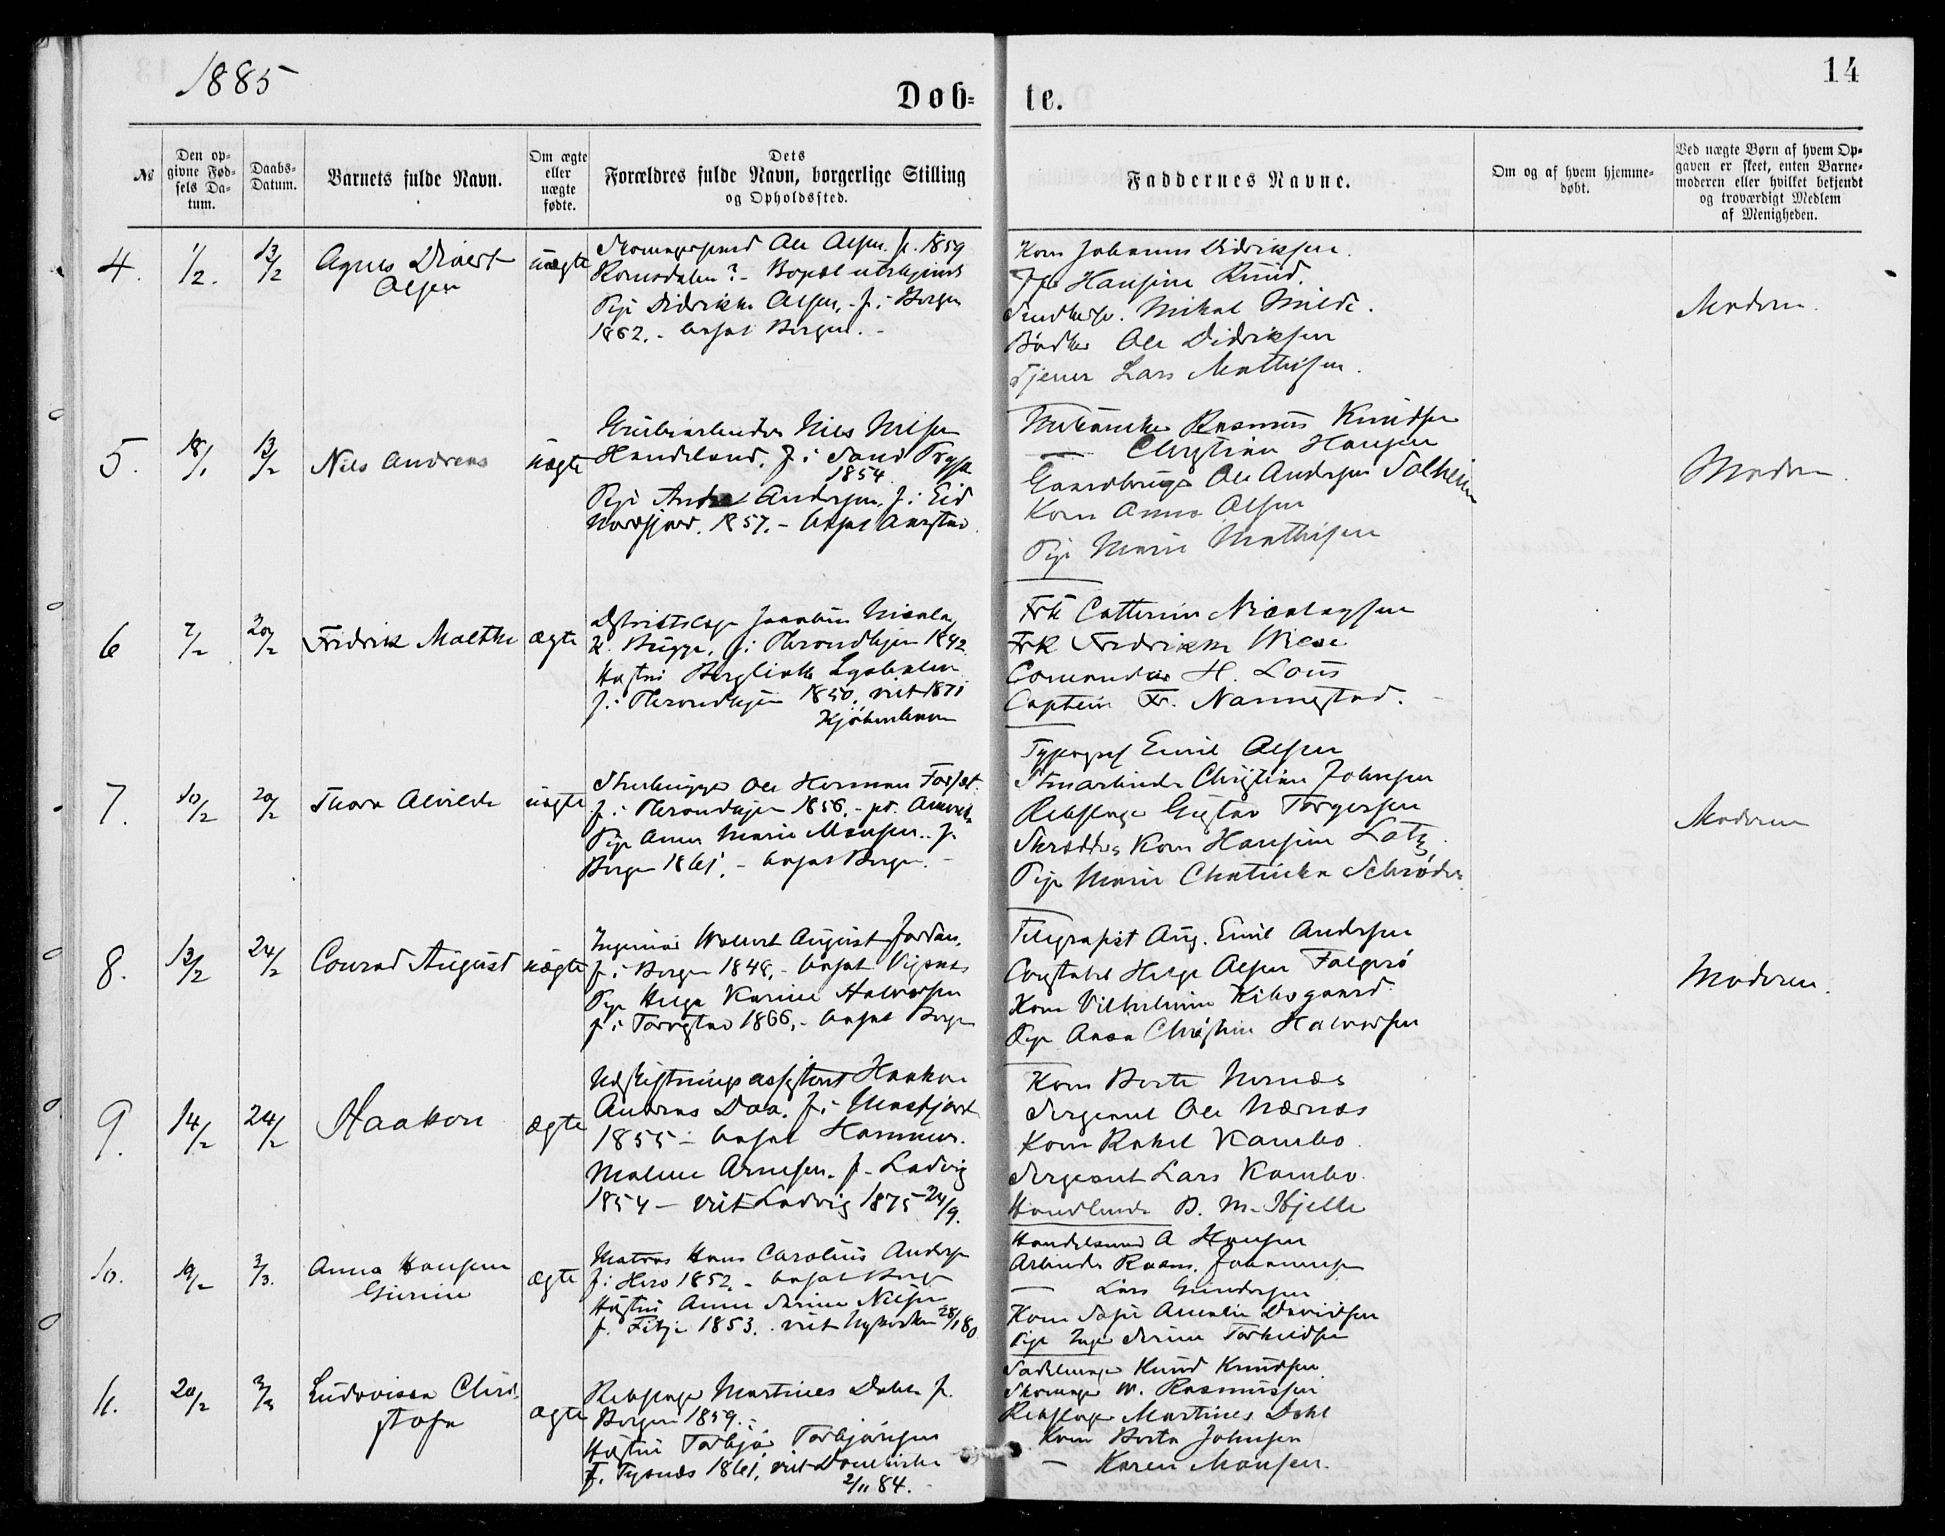 1885
14
Døb- te.
№
Den opgivne Fødsels Datum.
Daabs-Datum.
Barnets fulde Navn.
Om ægte eller uægte fødte.
Dets Forældres fulde Navn, borgerlige Stilling og Opholdssted.
Faddernes Navne.
Om og af hvem hjemmedøbt.
Ved uægte Børn af hvem Opgaven er skeet, enten Barnemoderen eller hvilket bekjendt og troværdigt Medlem af Menigheden.
4. 1/2. 13/2 Agnes Olsen uægte
Ole Olsen. f. 1859
Romsdalen? - Bopæl ubekjendt
Pige Didrikke Olsen, - f. i Bergen
1862. - bosat Bergen. -
Kone Johanne Didriksen.
Hansine Knud.
Mikal Milde.
Bødker Ole Didriksen
Tjener Lars Mathisen.
Moderen.
5. 18/1 13/2 Nils Andreas uægte
Grubearbeider Nils Nilsen
Handeland, f. i Sand
1854
Pige Andersen, f. i Eid
Nordfjord. 1857. - bosat
Rasmus Knudsen
— Christian Hansen
Gaardbruger Ole Andersen Solheim
Kone Anna Olsen
Pige Marie Mathisen
Moderen.
6 7/2 20/2 Fredrik Malthe ægte
Distriktslæge Nicolay
K. Brügge, f. i Throndhjem 1842
Hustru Bergliotte
f. i Throndhjem 1850, viet 1871
Kjøbenhavn
Frk Catterine Nicolaysen
Frk Fredrikke Wiese
Comandør H. Lous
Captein Fr. Nannestad.
7. 10/2 20/2 Thora Alvilde uægte
Stenhugger Ole Herman
f. i Throndhjem 1856. - pt. Amerika
Pige Anna Marie Monsen. f.
Bergen 1861. - bosat Bergen. -
Typograf Emil Olsen
Stenarbeider Christian Johnsen
Rebslager Gustav Torgersen
Skrædder Kone Hansine Lotz
Pige Marie Chatinka Schrøder.
Moderen
8. 13/2 24/2 Conrad August uægte
Ingeniør August Jordan,
f. i Bergen 1848. - bosat Vigsnæs
Pige Helga Karine Halvorsen
f. i Torvestad 1866. - bosat Bergen
Telegrafist Aug. Emil Andersen
Constabel Helge Olsen Folgerø
Kone Vilhelmine Kibsgaard
Pige Anna Christine Halvorsen
Moderen.
9. 14/2 24/2 Haakon ægte
Udskiftningsassistent Haakon
Andreas Daa. f. i
1855 - bosat Hammer.
Malene Arnesen. f. Ladvig
1854 - viet Ladvig 1875 24/9.
Kone Berte Nernæs
Sergeant Ole Nærnæs
Kone Rakel Kambo.
Sergeant Lars Kambo.
Handlende D. M. Hjelle
10. 19/2 2/3. Anna Hansine Gurine ægte
Matros Hans Carolius Andersen
f. i Herø 1852. - bosat Bergen
Hustru Anne Serine Nilsen
f. Fitje 1853. viet Nykirken 28/1 80
Handelsmand A Hansen
Arbeider Rasm. Johannesen
— Lars Gundersen
Kone Sofie Amalie Davidsen
Pige Inge Serine Torkildsen
11. 20/2 2/3 Ludovissa Christofa ægte
Rebslager Martines Dahl f.
Bergen 1859. -
Hustru Torbjør Torbjørnsen
f. Tysnæs 1861, viet Domkirken
2/11 84. -
Sadelmager Knud Knudsen
Skomager M. Rasmussen
Rebslager Martines Dahl
Kone Berta Johnsen
— Karen Monsen.